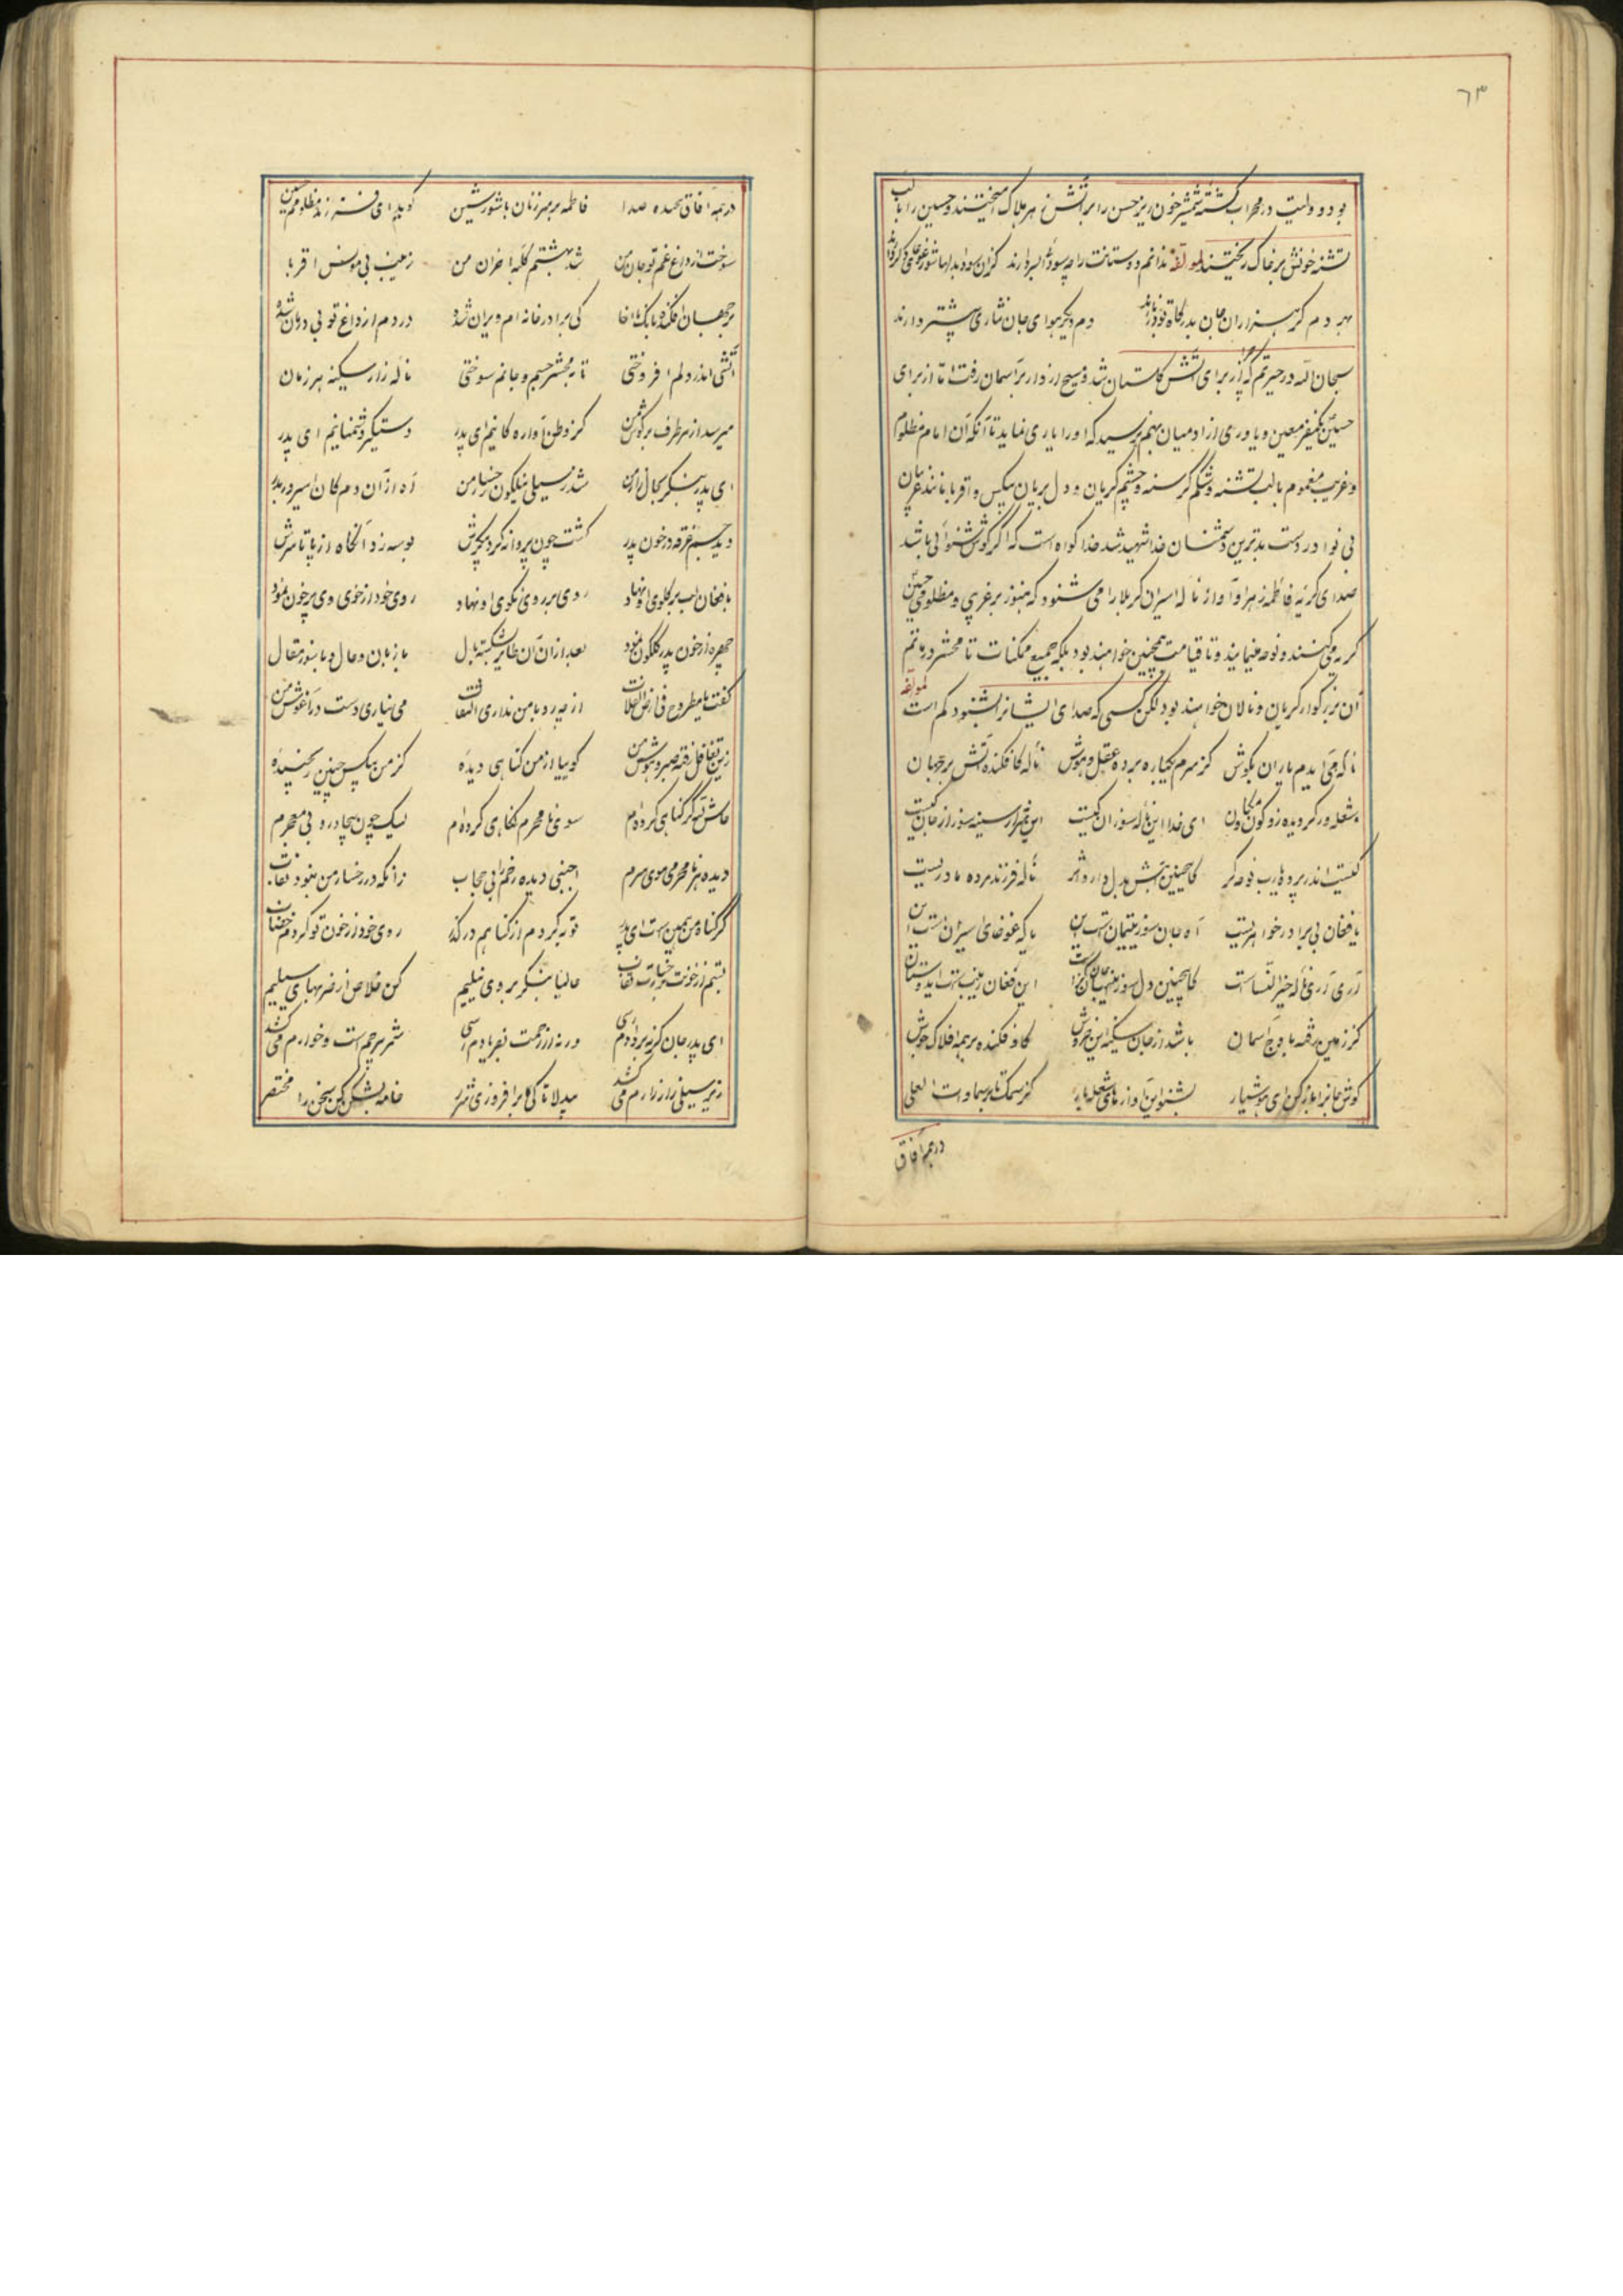 ٦٣
بود و ولیت در محراب کشته شمشیر خون ریز حسن را بر آتش زهر هلاک امیختند و حسین را با لب
تشنه خونش بر خاک ریختند لمولفه ندانم دوستانت را چه سودا بر سر دارند کزان سودا
بهر دم کر هزاران جان بدرکاه تو دربازند دم دیکر هوای جان نثاری بیشتر دارند
سبحان الله در حیرتم که از برای آتش کلستان شد و مسیح از دار بر آسمان رفت اما از برای
حسین یکنفر معین و یاوری از ادمیان بهم نرسید که او را یاری نماید تا آنکه آن امام مظلوم
و غریب مغموم با لب تشنه و شکم کرسنه و چشم کریان و دل بریان بیکس و اقربا مانند غریبان
بی نوا در دست بدترین دشمنان خدا شهید شد خدا کواه است که اکر کوش شنوائی باشد
صدای کریه فاطمه زهرا و آواز ناله اسیران کربلا را می شنود که هنوز بر غریبی و مظلومی حسین
کریه میکنند و نوحه مینمایند و تا قیامت همچنین خواهند بود بلکه جمیع ممکنات تا محشر در ماتم
آن بزرکوار کریان و نالان خواهند بود لکن کسی که صدای ایشانرا بشنود کم است لمولفه
ناکه می آیدم یاران بکوش کز سرم یکباره برده عقل و هوش ناله کافکنده آتش بر جهان
شعله ور کردیده زو کون و مکان ای خدا این ناله سوزان کیست این شرار سینه سوز از جان کیست
کیست اندر پرده یارب نوحه کر کاینچنین آتش بدل دارد اثر ناله فرزند مرده مادریست
یا فغان بی برادر خواهریست آه جان سوز یتیمان است این یا که غوغای اسیران است این
آری آری ناله خیر النساست کاینچنین دل سوز و جان کزاست این فغان زینب است ایدوستان
کز زمین رفته باوج آسمان باشد از جان سکینه این خروش کاو فکنده بر همه افلاک جوش
کوش جانرا باز کن ای هوشیار بشنو این آوازهای شعله بار کز سمک تا بر سماوات العلی
در همه آفاق
در همه آفاق پیچیده صدا فاطمه بر سر زنان با شور و شین کوید ای فرزند مظلومم حسین
سوخت از داغ غم تو جان من شد بهشتم کلبه احزان من زینب بی مونس اقربا
بر جهان افکنده بانک یا اخا کی برادر خانه ام ویران شده دردم از داغ تو بی درمان شده
آتشی اندر دلم افروختی تا بمحشر جسم و جانم سوختی ناله زار سکینه هر زمان
میرسد از هر طرف بر کوش من کز وطن آواره کانیم ای پدر دستکیر دشمنانیم ای پدر
ای پدر بنکر بحال زار من شد ز سیلی نیلکون رخسار من آه از آن دم کان اسیر در بدر
دید جسم غرقه در خون پدر کشت چون پروانه کرد پیکرش بوسه زد آنکاه از پا تا سرش
با فغان لب بر کلوی او نهاد روی بر روی نکوی او نهاد روی خود از خوی وی پر خون نمود
چهره از خون پدر کلکون نمود بعد از آن آن طایر بشکسته بال با زبان و حال و با سوز مقال
کفت یا مطروح فی ارض الفلات از چه رو با من نداری التفات می نیاری دست در آغوش من
زین تغافل رفته صبر و هوش من کوییا از من کناهی دیده کز من بیکس چنین رنجیده
حاش لله کر کناهی کرده ام سوی نامحرم نکاهی کرده ام لیک چون بیچادر و بی معجرم
دیده هر نامحرمی موی سرم اجنبی دیده رخم را بی حجاب زانکه در رخسار من نبود نقاب
کر کناه من همین است ای پدر توبه کردم از کناهم در کذر روی خود از خون تو کردم خضاب
بستم از خونت برخسارت نقاب حالیا بنکر بروی نیلیم کن خلاص از ضربهای سیلیم
ای پدر جان کر نه بر دادم رسی ورنه از رحمت بفریادم رسی شمر بیرحم است و خوارم می کشد
زیر سیلی زار زارم می کشد بیدلا تا کی برافروزی شرر خامه بشکن کن سخن را مختصر